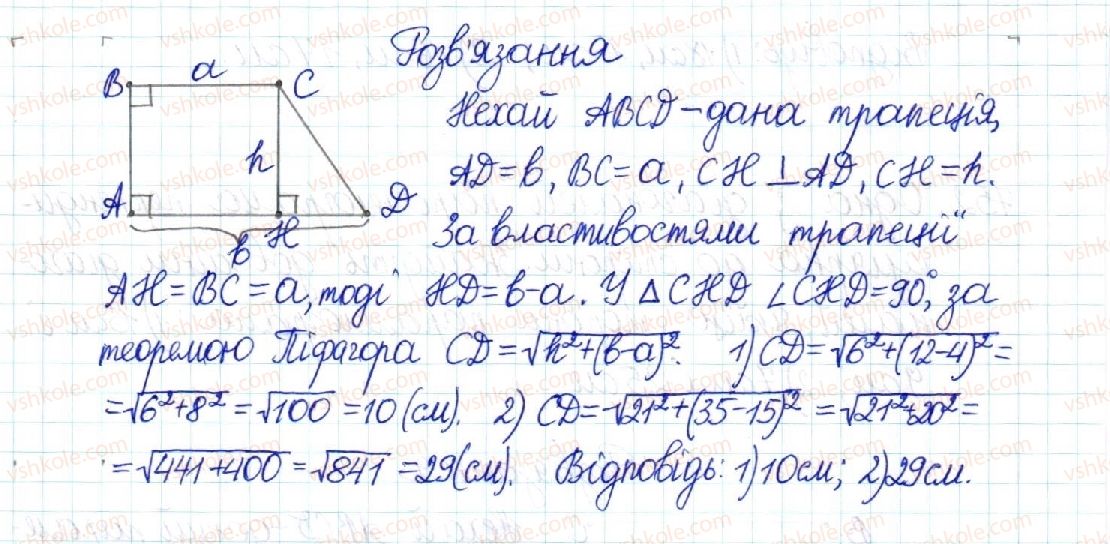 Розв'язання
B a C
Нехай ABCD – дана трапеція,
h
AD = b, BC = a, CH ⊥ AD, CH = h.
A H D
b
За властивостями трапеції
AH = BC = a, тоді HD = b-a. У △CHD ∠CHD = 90°, за
теоремою Піфагора CD = √(h²+(b-a)²). 1) CD = √(6²+(12-4)²) =
= √(6²+8²) = √100 = 10 (см). 2) CD = √(21²+(35-15)²) = √(21²+20²) =
= √(441+400) = √841 = 29 (см). Відповідь: 1) 10 см; 2) 29 см.
vshkole.com